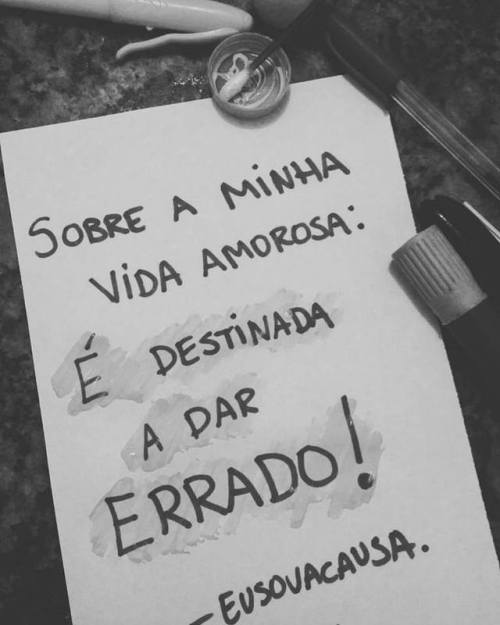 SOBRE A MINHA
VIDA AMOROSA:
É DESTINADA
A DAR
ERRADO!
— EUSOVACAUSA.